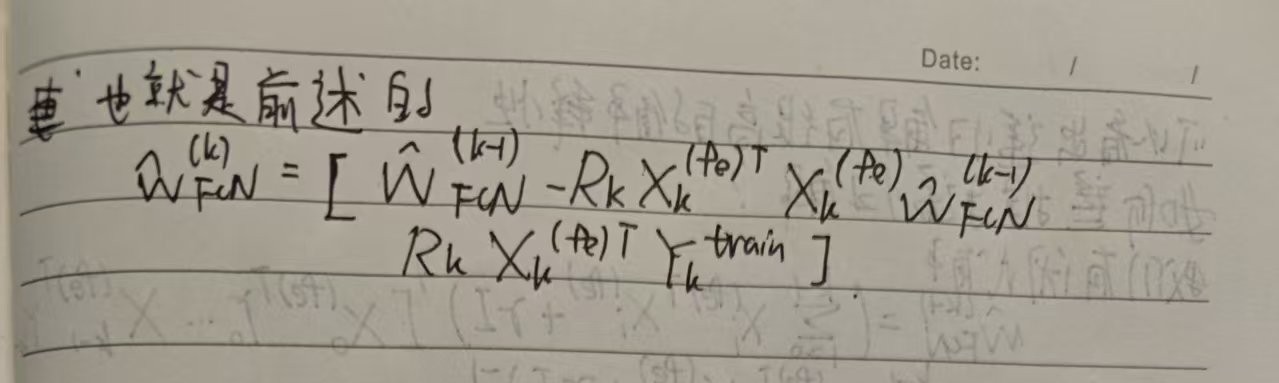 Date: / /
也就是前述的
Ŵ_FCN^(k) = [ Ŵ_FCN^(k-1) - R_k X_k^(fe)T X_k^(fe) Ŵ_FCN^(k-1)
R_k X_k^(fe)T Y_k^train ]